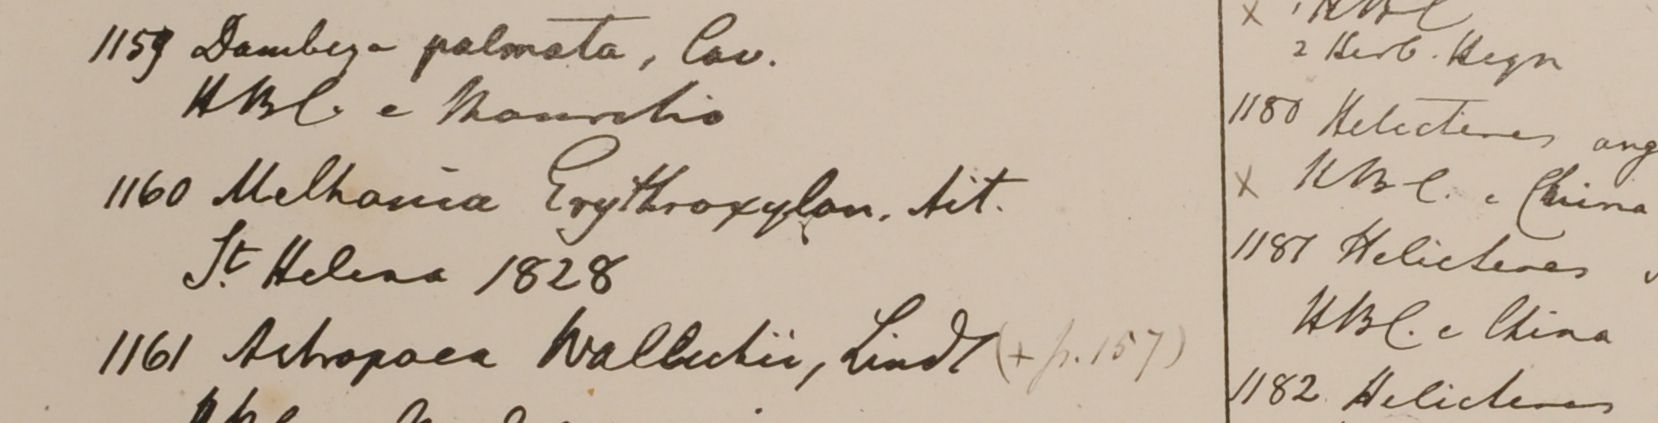 1159 Dombeya palmata, Cav.
HBC. e Mauritio
1160 Melhania Erythroxylon. Ait.
St. Helena 1828
1161 Astrapaea Wallichii, Lindl (+ p. 157)
x 1 HBC
2 Herb. Heyn
1180 Helicteres ang
x HBC. e China
1181 Helicteres
HBC. e China
1182 Helicteres